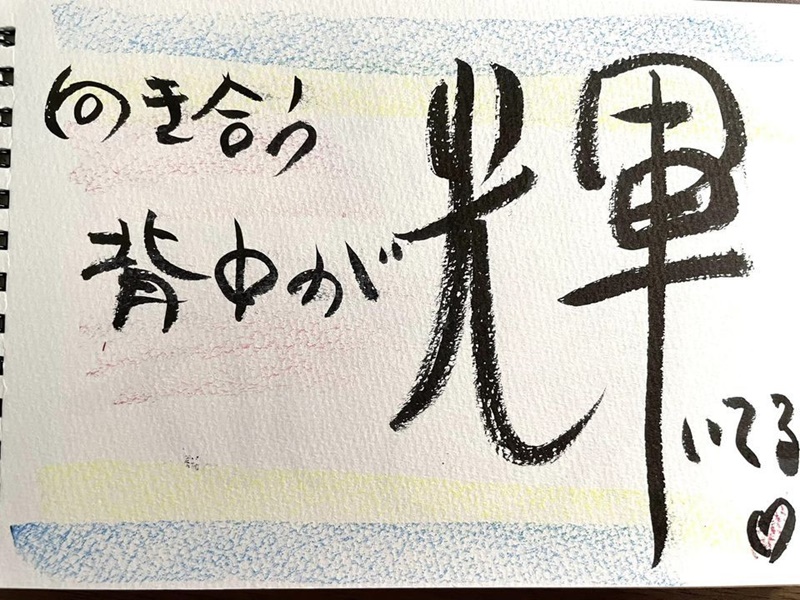 向き合う
背中が
輝
いてる